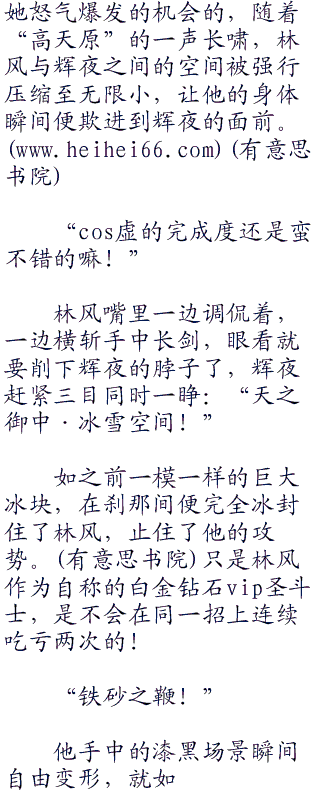 她怒气爆发的机会的，随着
“高天原”的一声长啸，林
风与辉夜之间的空间被强行
压缩至无限小，让他的身体
瞬间便欺进到辉夜的面前。
(www.heihei66.com)(有意思
书院)
“cos虚的完成度还是蛮
不错的嘛！”
林风嘴里一边调侃着，
一边横斩手中长剑，眼看就
要削下辉夜的脖子了，辉夜
赶紧三目同时一睁：“天之
御中·冰雪空间！”
如之前一模一样的巨大
冰块，在刹那间便完全冰封
住了林风，止住了他的攻
势。(有意思书院)只是林风
作为自称的白金钻石vip圣斗
士，是不会在同一招上连续
吃亏两次的！
“铁砂之鞭！”
他手中的漆黑场景瞬间
自由变形，就如